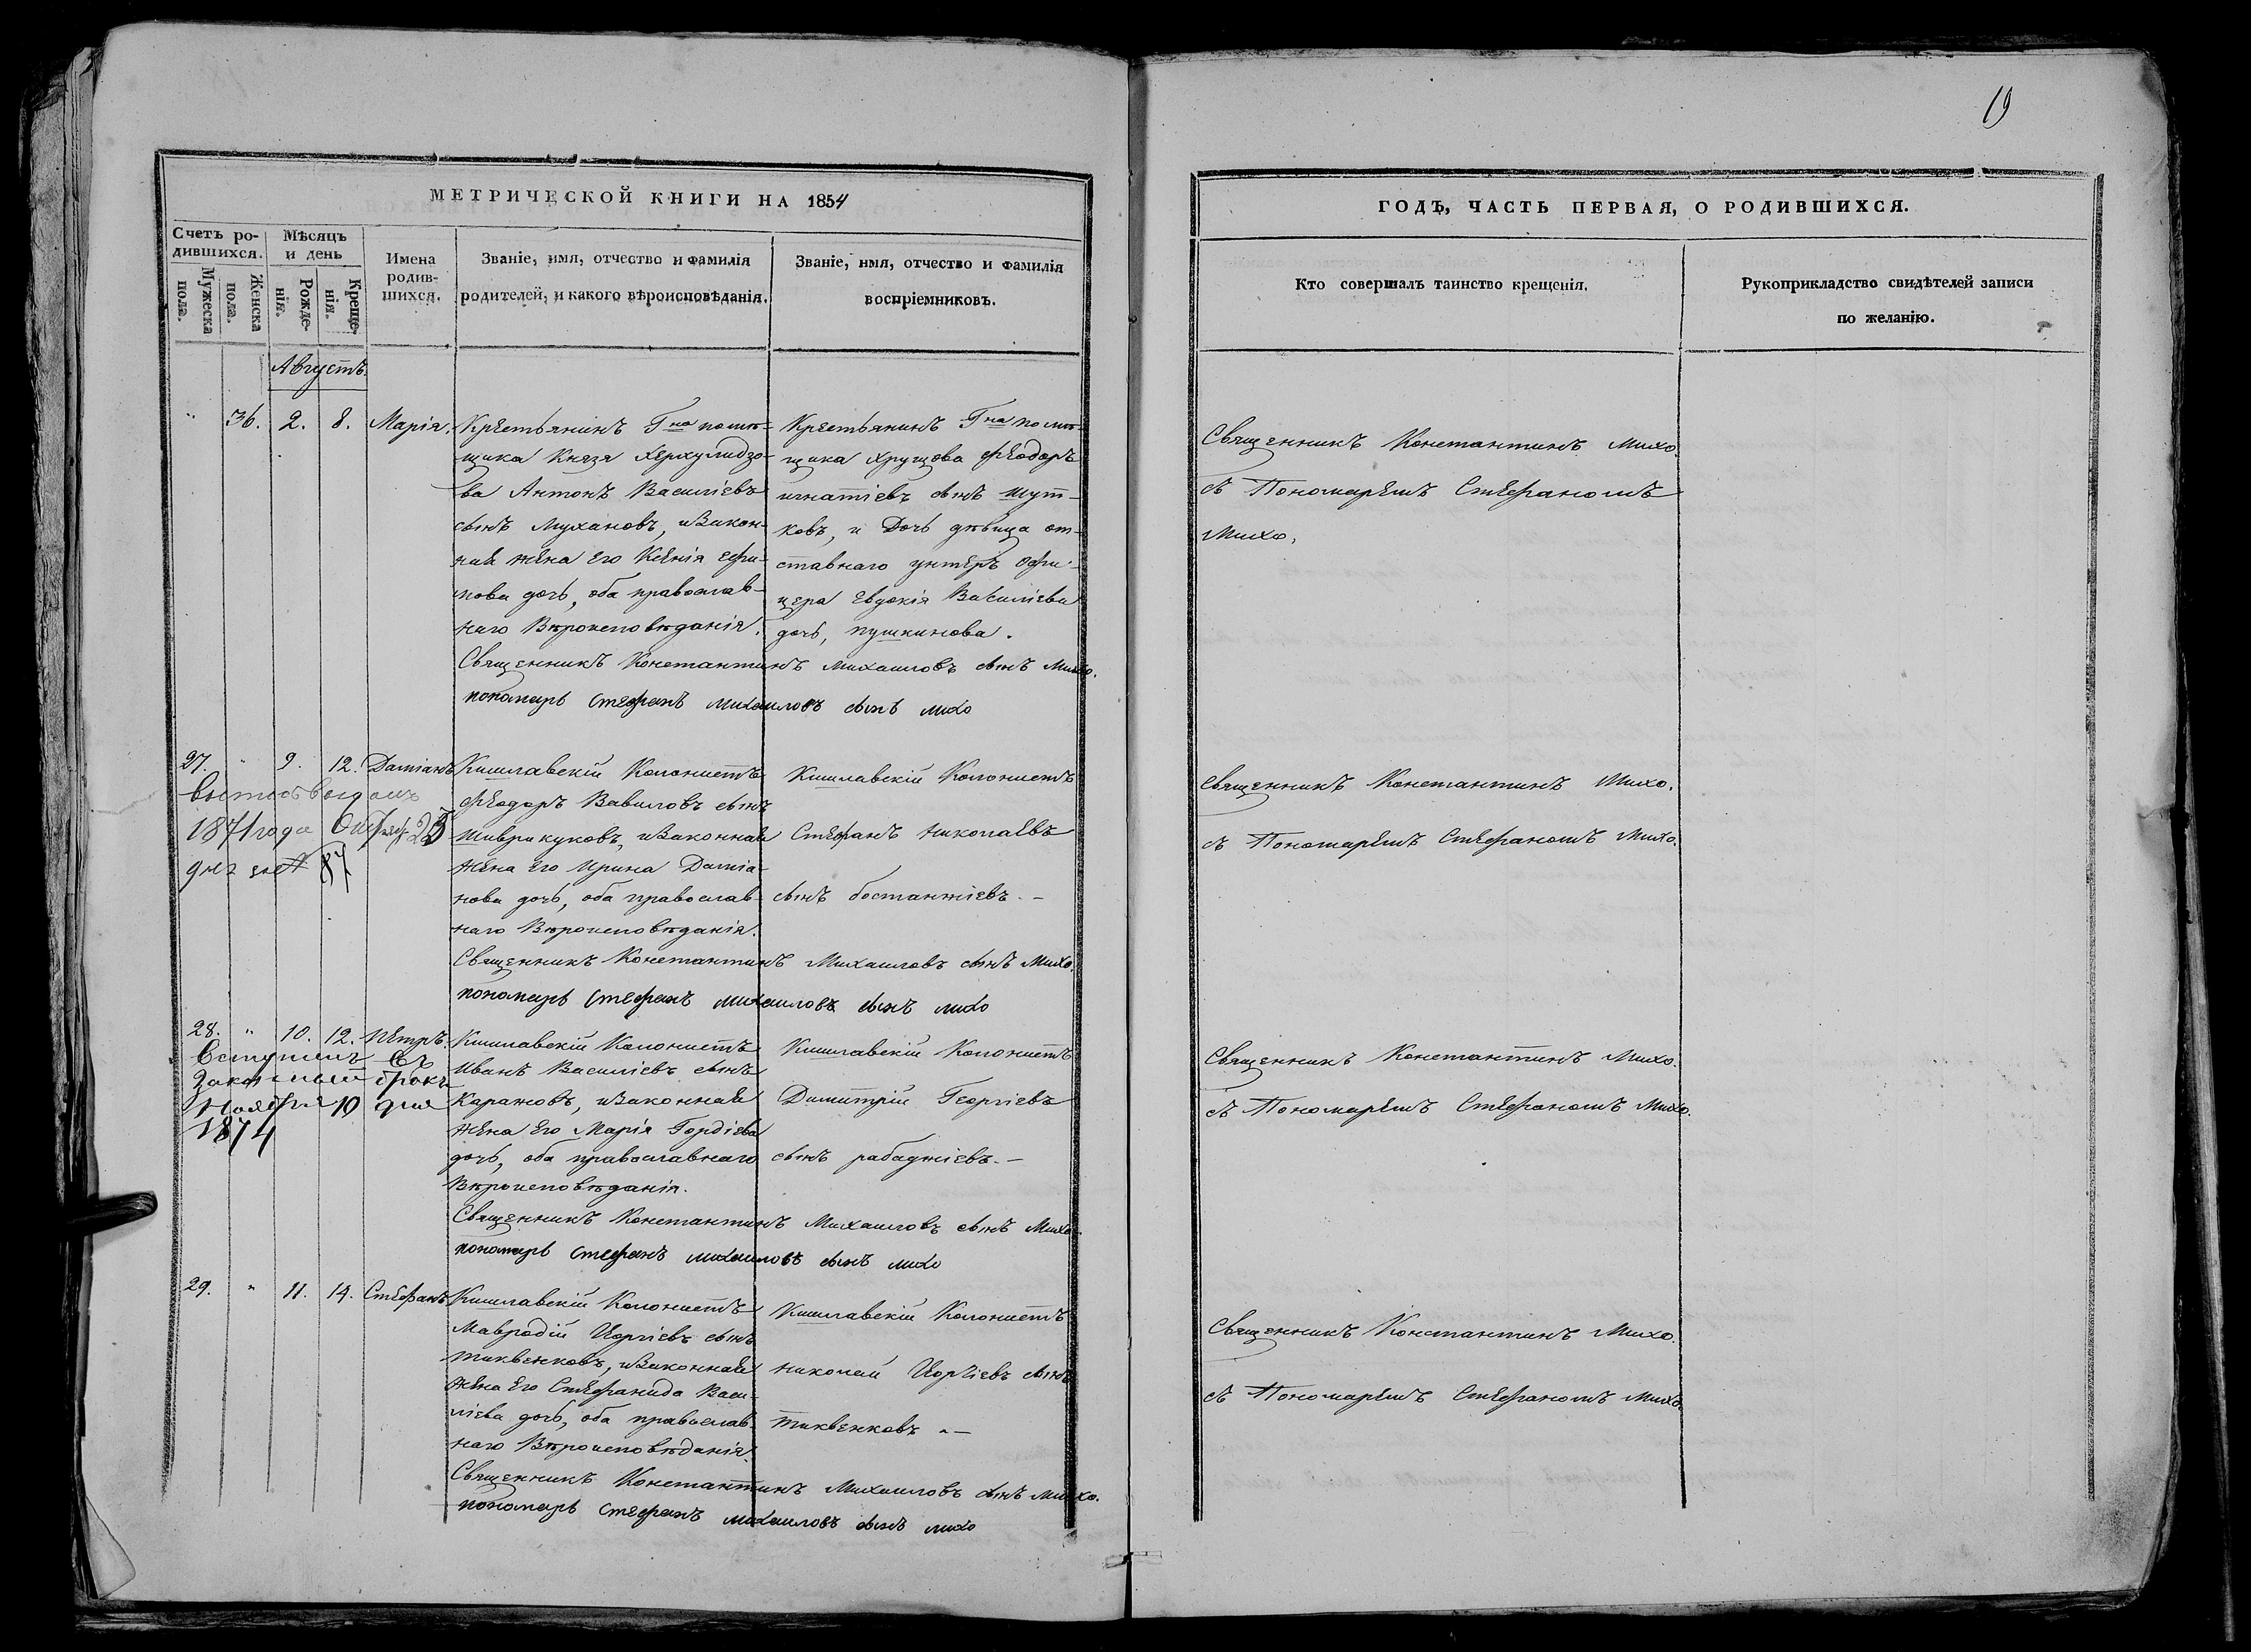 19
МЕТРИЧЕСКОЙ КНИГИ НА 1854
ГОДЪ, ЧАСТЬ ПЕРВАЯ, О РОДИВШИХСЯ.
Счетъ ро-
дившихся.
Мужеска
пола.
Женска
пола.
Мѣсяцъ
и день
Рожде-
нія.
Креще-
нія.
Имена
родив-
шихся.
Званіе, имя, отчество и фамилія
родителей, и какого вѣроисповѣданія.
Званіе, имя, отчество и фамилія
воспріемниковъ.
Кто совершалъ таинство крещенія.
Рукоприкладство свидѣтелей записи
по желанію.
Августъ.
" 36. 2. 8. Марія.
Крестьянинъ Гна помѣ-
щика Князя Херхулидзо-
ва Антонъ Василіевъ
сынъ Мухановъ, и Закон-
ная жена Его Ксенія Ефи-
мова дочь, оба православ-
наго Вѣроисповѣданія.
Крестьянинъ Гна помѣ-
щика Хрущова Феодоръ
игнатіевъ сынъ Шут-
ковъ, и Дочь дѣвица от-
ставнаго унтеръ Офи-
цера Евдокія Василіева
дочь, пушкинова.
Священникъ Константинъ Михаиловъ сынъ Михо.
пономарь Стефанъ михаиловъ сынъ михо
Священникъ Константинъ Михо.
съ Пономаремъ Стефаномъ
Михо.
27. " 9. 12. Даміанъ
1871 года 25
87
Кишлавскій Колонистъ
Феодоръ Вавиловъ сынъ
Шиврикуковъ, и Законная
жена Его Ирина Даміа-
нова дочь, оба православ-
наго Вѣроисповѣданія.
Кишлавскій Колонистъ
Стефанъ Николаевъ
сынъ бостанжіевъ. –
Священникъ Константинъ Михаиловъ сынъ Михо.
пономарь Стефанъ михаиловъ сынъ михо
Священникъ Константинъ Михо.
съ Пономаремъ Стефаномъ Михо.
28. " 10. 12. Петръ.
Вступилъ въ
Законный бракъ
Ноября 10 дня
1874
Кишлавскій Колонистъ
Иванъ Василіевъ сынъ
Каражовъ, и Законная
жена Его Марія Гордіева
дочь, оба православнаго
Вѣроисповѣданія.
Кишлавскій Колонистъ
Димитрій Георгіевъ
сынъ рабаджіевъ. –
Священникъ Константинъ Михаиловъ сынъ Михо
пономарь Стефанъ михаиловъ сынъ михо
Священникъ Константинъ Михо.
съ Пономаремъ Стефаномъ Михо.
29. " 11. 14. Стефанъ
Кишлавскій Колонистъ
Мавродій Иоргіевъ сынъ
тиквенковъ, и Законная
жена Его Стефанида Васи-
ліева дочь, оба православ-
наго Вѣроисповѣданія.
Кишлавскій Колонистъ
Николай Иоргіевъ сынъ
тиквенковъ. –
Священникъ Константинъ Михаиловъ сынъ Михо.
пономарь Стефанъ михаиловъ сынъ михо
Священникъ Константинъ Михо.
съ Пономаремъ Стефаномъ Михо.